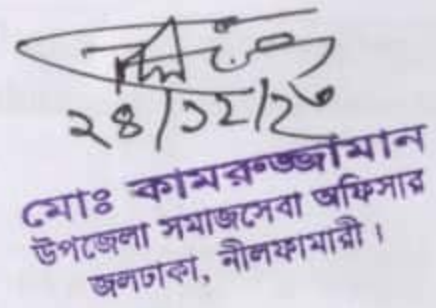 ২৪/১২/২৩
মোঃ কামরুজ্জামান
উপজেলা সমাজসেবা অফিসার
জলঢাকা, নীলফামারী।